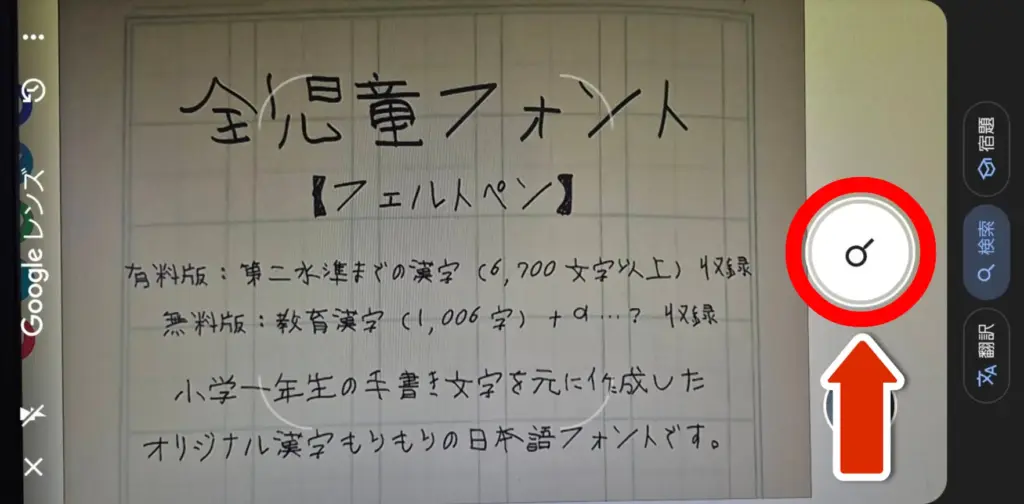 全児童フォント
【フェルトペン】
有料版：第二水準までの漢字（6,700文字以上）収録
無料版：教育漢字（1,006字）+α…？収録
小学一年生の手書き文字を元に作成した
オリジナル漢字もりもりの日本語フォントです。
Google レンズ
翻訳
検索
宿題